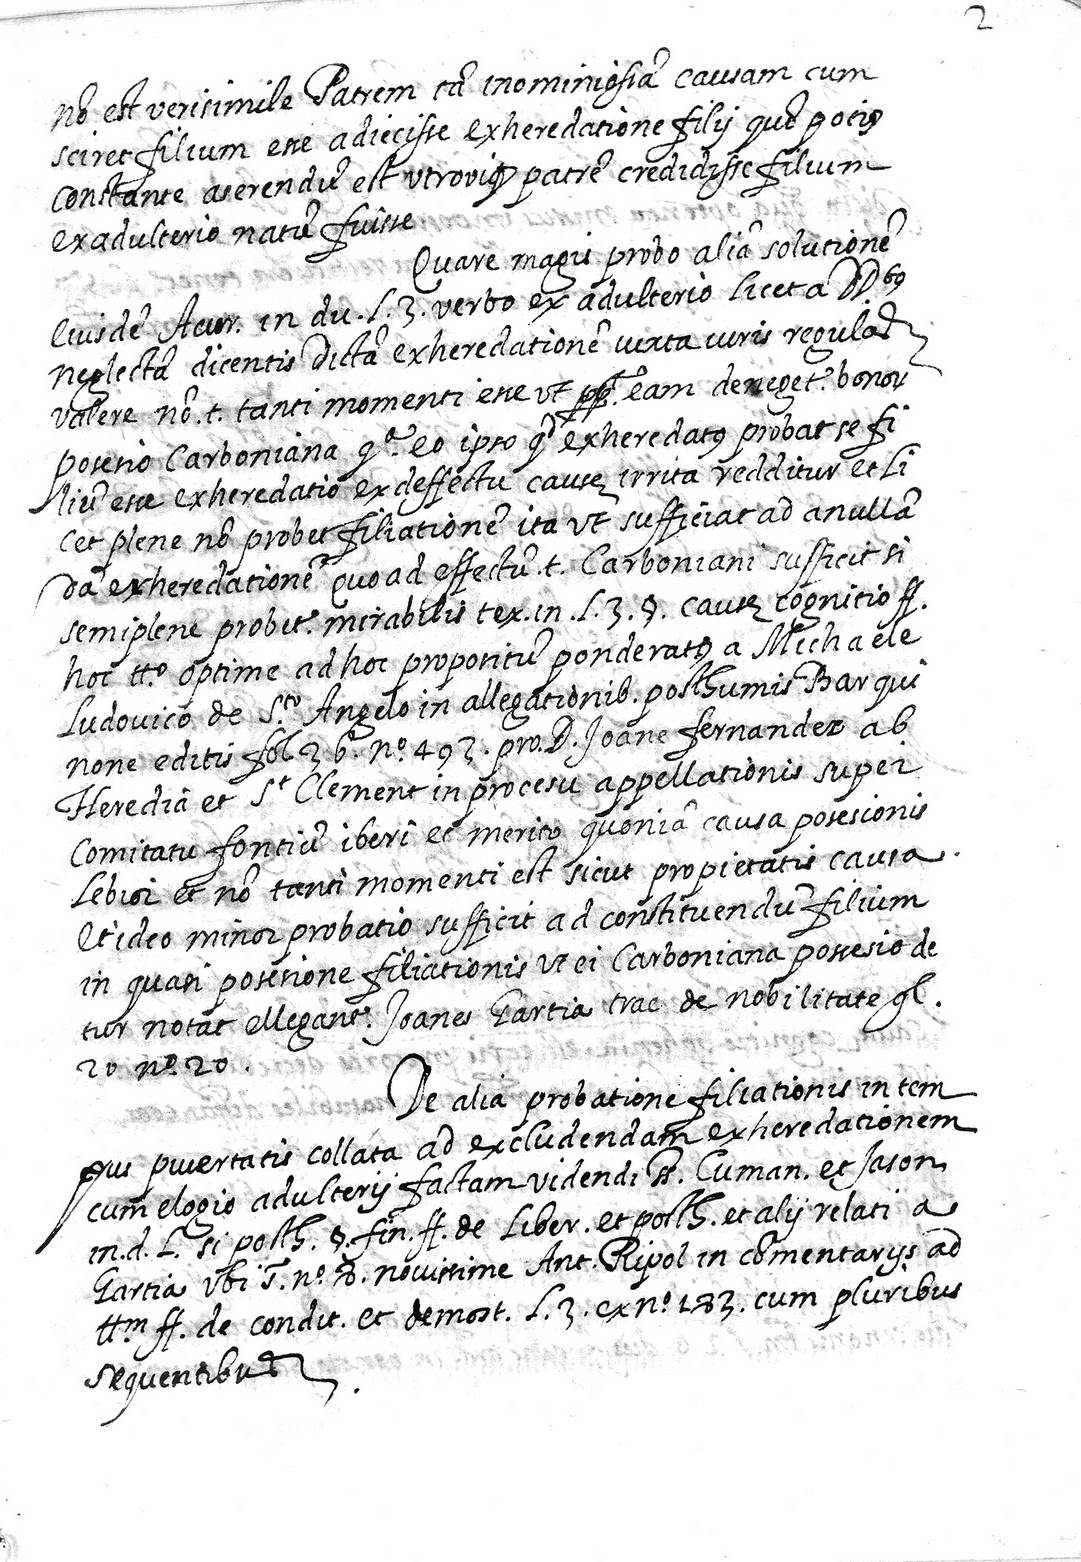 2
nō est verisimile Patrem tā inominiosā causam cum
sciret filium esse adiecisse exheredatione filij quō potiꝰ
constante aserendū est utroviq̃ patrē credidisse filium
ex adulterio natū fuisse
Quare magis probo aliā solutionē
Eiusdē Acur. in du. l. 3. verbo ex adulterio licet a DD.bꝰ
neglectā dicentis dictā exheredationē iuxta iuris regulas
valere nō. t. tanti momenti esse ut eam deneget.r bonor
posesio Carboniana q.a eo ipso qđ exheredatꝰ probat se fi
liū esse exheredatio ex deffectu causę irrita redditur et li
cet plene nō probet filiationē ita ut sufficiat ad anullā
dā exheredationē quo ad effectū. t. Carboniani sufficit si
semiplene probet.r mirabilis tex. in. l. 3. §. causę cognitio ff.
hoc tt.o optime ad hoc propositū ponderatꝰ a Michaele
Ludovico de S.to Angelo in allegationib. posthumis Barqui
none editis fol 36. n.o 493. pro. D. Joane fernandez ab
Heredia et S.t Clement in procesu appellationis super
Comitatu fontiū iberi et merito quoniā causa posesionis
lebior et nō tanti momenti est sicut propietatis causa.
Et ideo minor probatio sufficit ad constituendū filium
in quasi posesione filiationis ut ei Carboniana possesio de
tur notat ellegant.r Joanes Gartia trac de nobilitate gl.
20 n.o 20.
De alia probatione filiationis in tem
pus pubertatis collata ad excludendam exheredationem
cum elogio adulterij factam videndi st. Cuman. et Jason
in. d. l. si posth. §. fin. ff. de liber. et posth. et alij relati a
Gartia ubi s̃. n.o 8. novissime Ant. Ripol in cōmentarijs ad
tt.m ff. de condit. et demost. l. 3. ex n.o 183. cum pluribus
sequentibus.